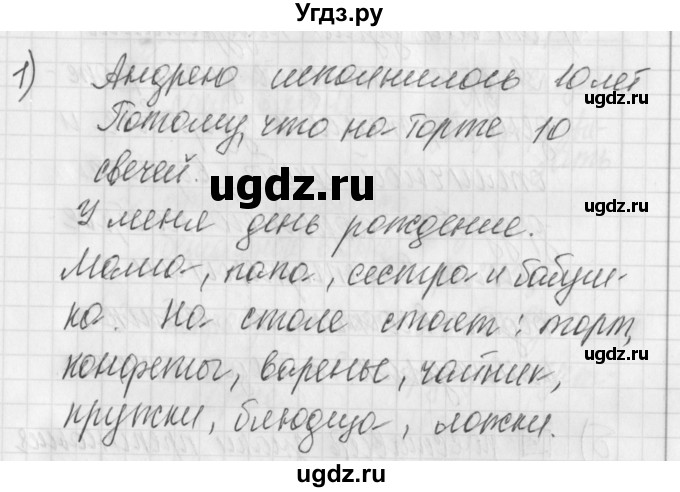 Угдз.ру
1) Андрею исполнилось 10 лет
ugdz.ru
Потому, что на торте 10
свечей.
ugdz.ru
ugdz.ru
У меня день рождение.
Мама, папа, сестра и бабуш-
ка. На столе стоят: торт,
ugdz.ru
конфеты, варенье, чайник,
кружки, блюдца, ложки.
ugdz.ru
ugdz.ru